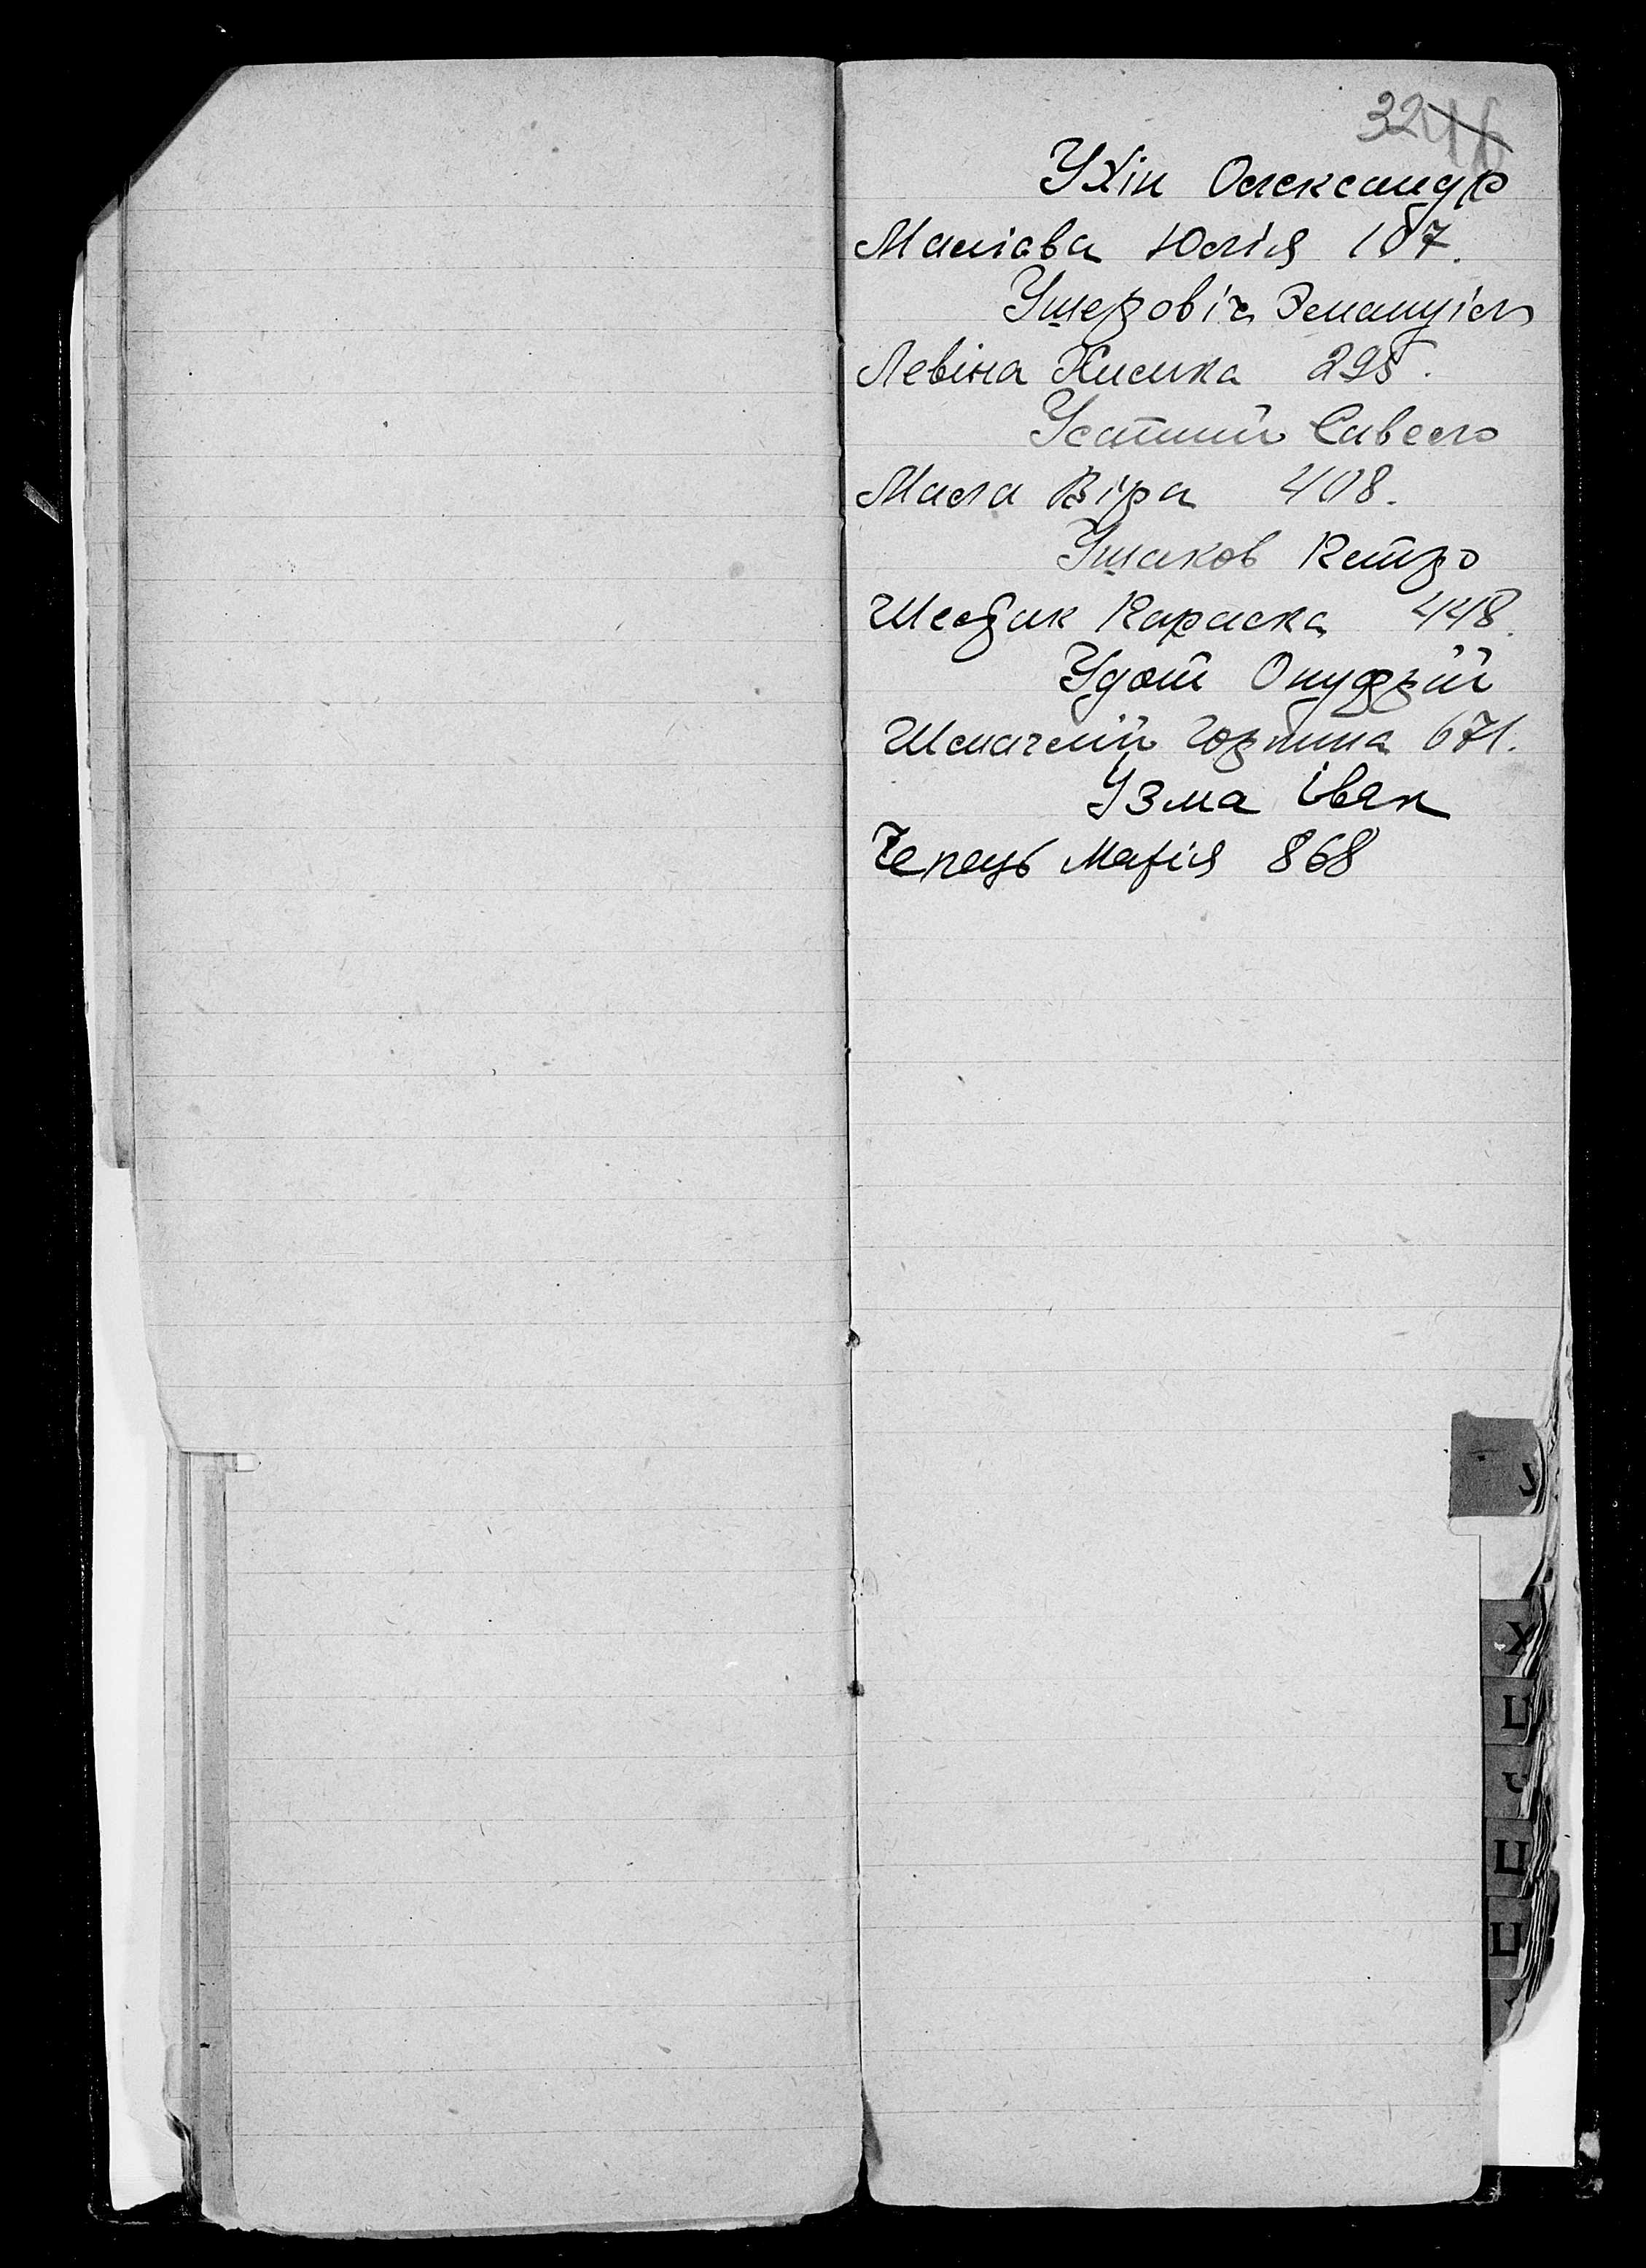 32 46
Ухін Олександр
Маліова Юлія 107.
Ушеровіч Земануіль
Левіна Хисика 295.
Усатий Савель
Мала Віра 408.
Ушаков Петро
Шебак Параска 448.
Удот Онуфрій
Шкначлій Горпина 671.
Узма Іван
Чепець Марія 868
У
Х
Ц
Ч